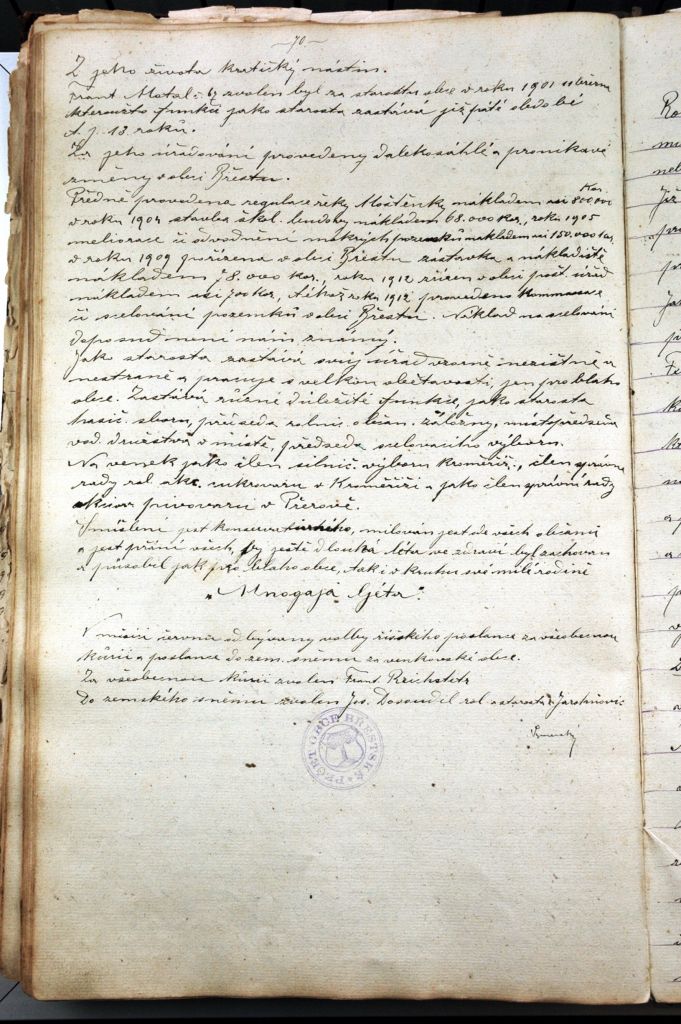 — 70 —
Z jeho života kratičký nástin.
Frant. Motal č. 67 zvolen byl za starostu obce v roku 1901 u března
kteroužto funkci jako starosta zastává již páté období
t. j. 13 roků.
Za jeho úřadování provedeny dalekosáhlé a pronikavé
změny v obci Břestu.
Předně provedena regulace řeky Moštěnky nákladem asi 800.000 Kor.
v roku 1904 stavba škol. budovy nákladem 68.000 Kor., roku 1905
meliorace či odvodnění mokrých pozemků nákladem asi 150.000 Kor.
v roku 1909 pořízena v obci Břestu zastávka a nákladiště
nákladem 78.000 Kor., roku 1912 řízen v obci pošt. úřad
nákladem asi 700 Kor, též roku 1912 provedeno
či scelování pozemků v obci Břestu. Náklad na scelování
doposud není nám známý.
Jako starosta zastává svůj úřad vzorně nezištně a
nestraně a pracuje s velkou obětavostí, jen pro blaho
obce. Zastává různé důležité funkce, jako starosta
hasič. sboru, předseda rolnic. občan. záložny, místpředseda
vod. družstva v místě, předseda scelovacího výboru.
Na venek jako člen silnič. výboru Kroměříž., člen správní
rady rol. akc. cukrovaru v Kroměříži a jako člen správní rady
pivovaru v Přerově.
Smýšlení jest konservativního, milován jest ode všech občanů
a jest přání všech, by ještě dlouhá léta ve zdraví byl zachován
a působil jak pro blaho obce, tak i v kruhu své milé rodině
„Mnogaja ljéta".
V měsíci červnu odbývany volby říšského poslance za všeobecnou
kurii a poslance do zem. sněmu za venkovské obce.
Za všeobecnou kurii zvolen Frant. Reichstetr
Do zemského sněmu zvolen Jos. Dosoudil rol. a starosta z Jarohněvic
PEČEŤ OBCE BŘESTSKÉ